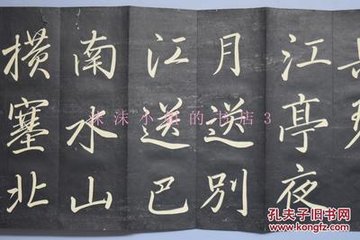 江亭夜
月送別
江送巴
南水山
横塞北
沫小 的书店3
孔夫子旧书网
www.kongfz.com